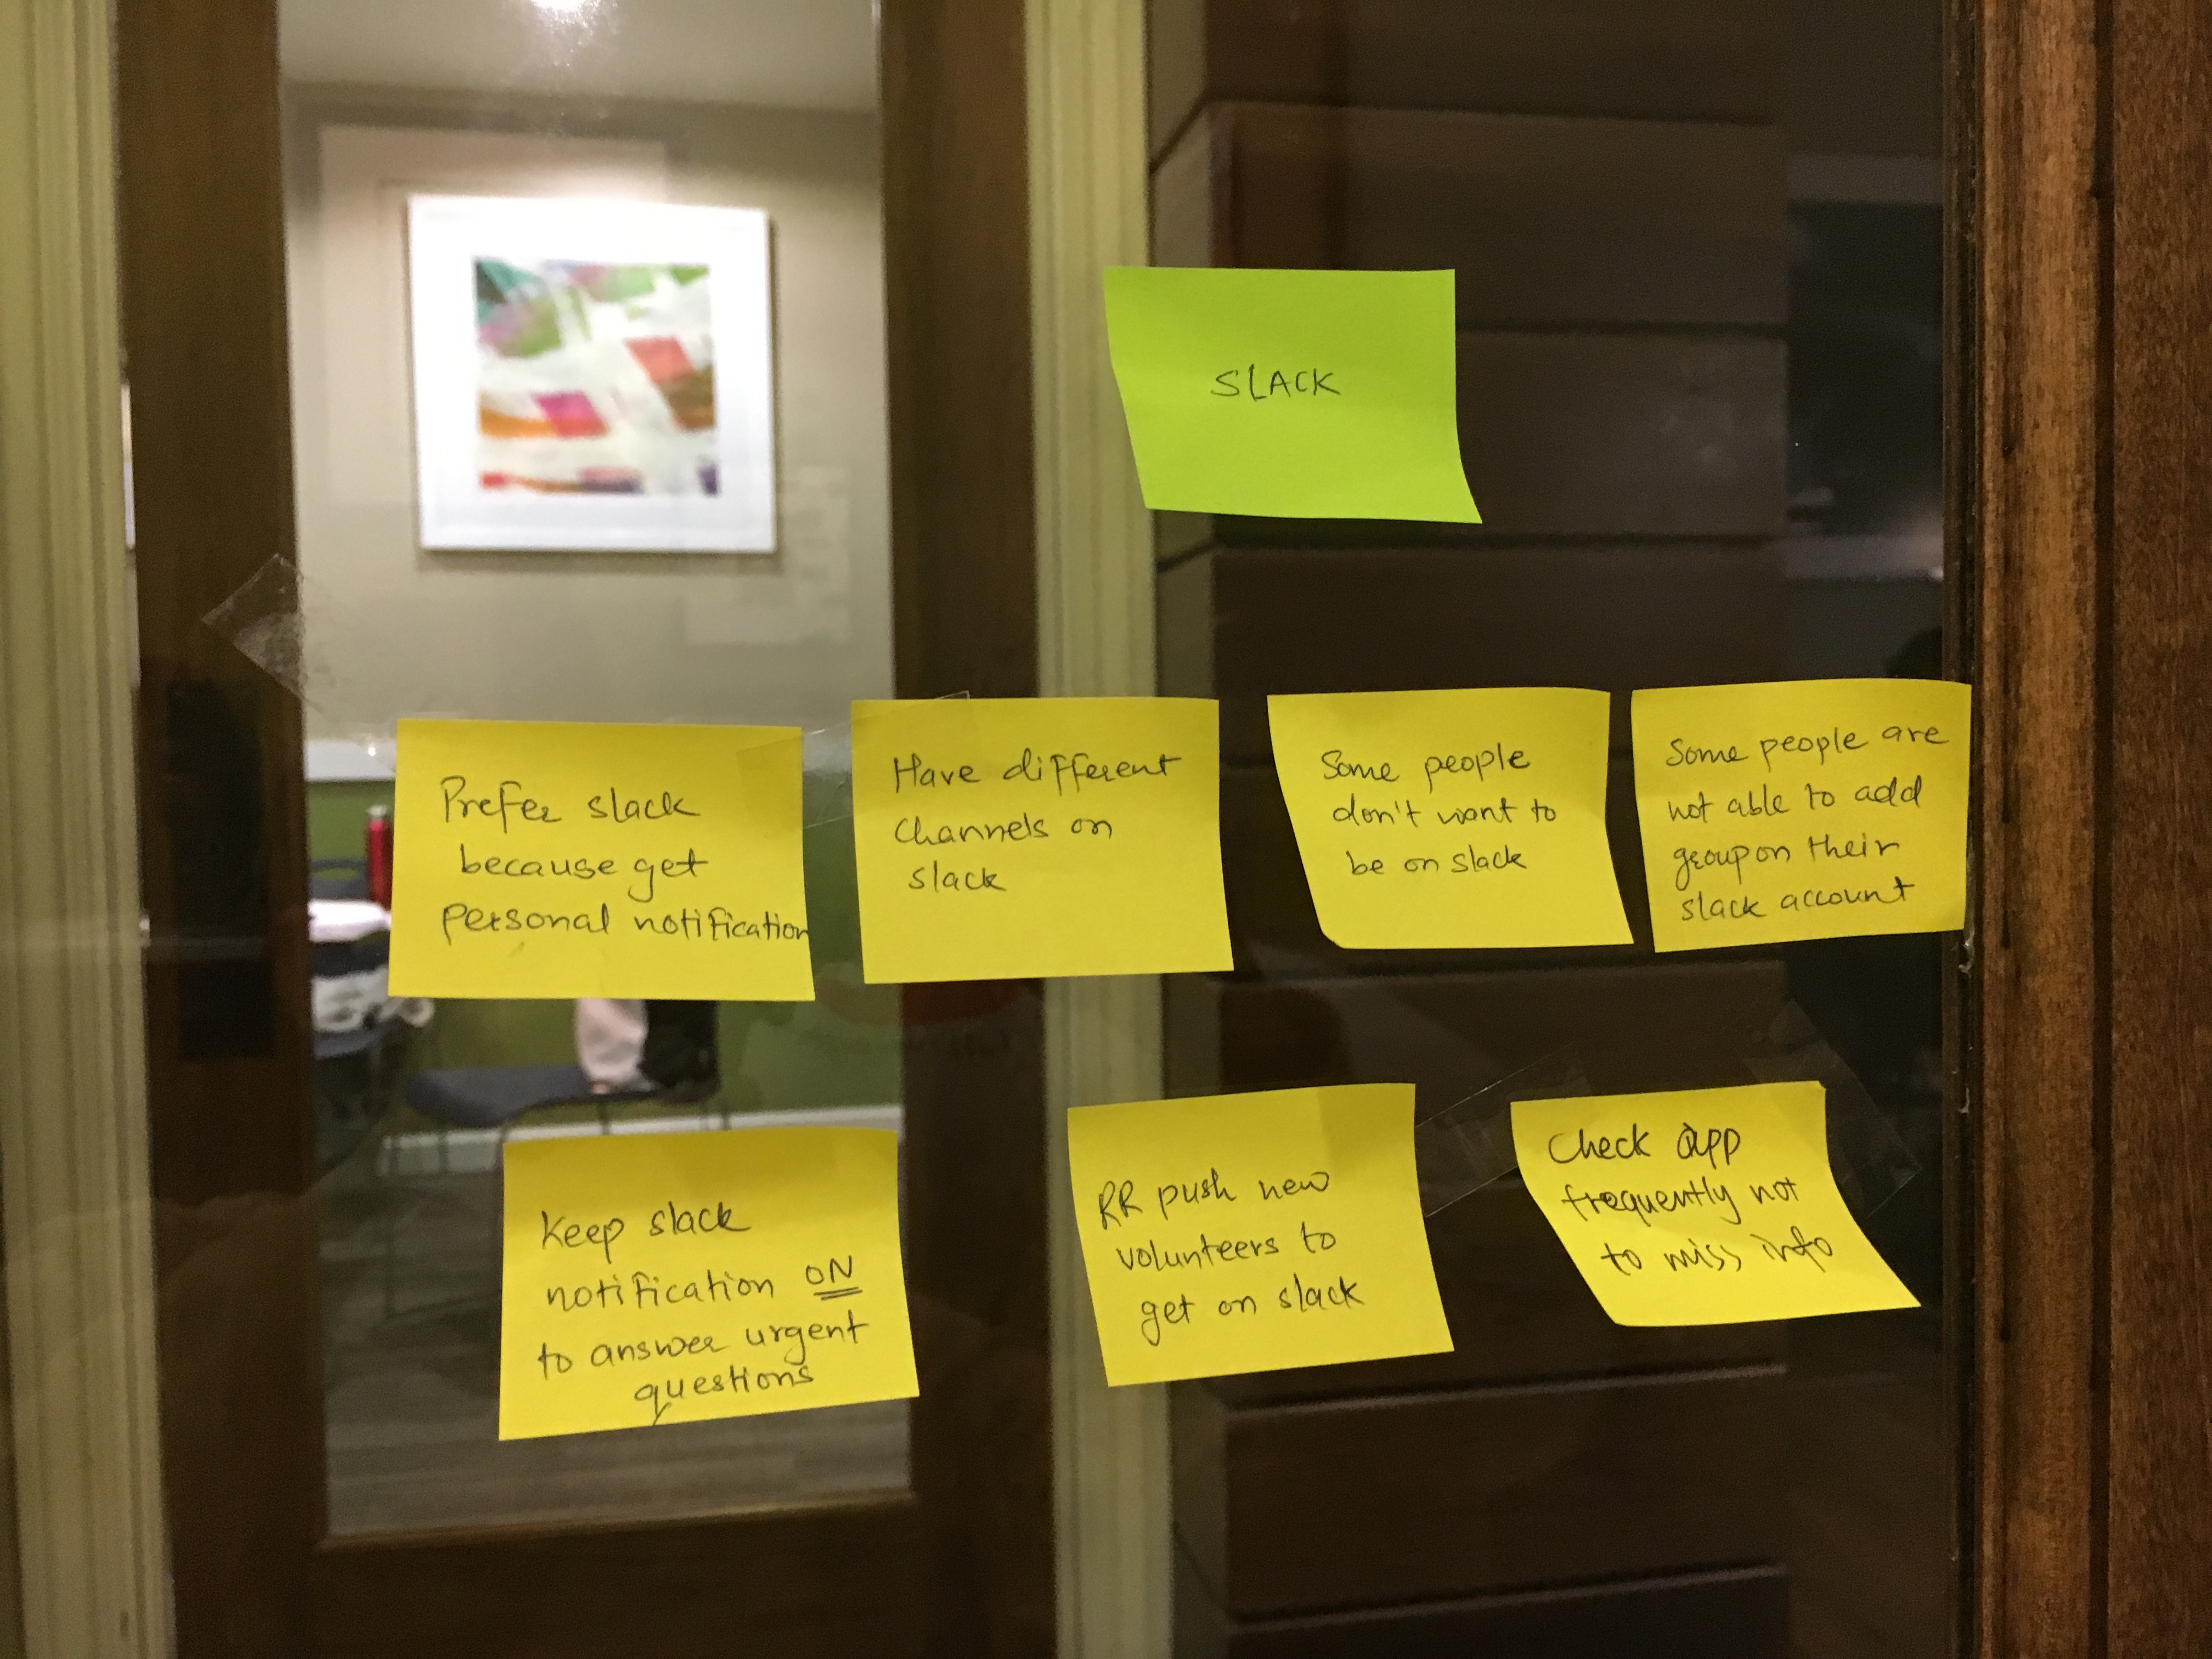 SLACK
Prefer slack
because get
personal notification
Have different
channels on
slack
Some people
don't want to
be on slack
Some people are
not able to add
group on their
slack account
Keep slack
notification ON
to answer urgent
questions
RR push new
volunteers to
get on slack
Check app
frequently not
to miss info